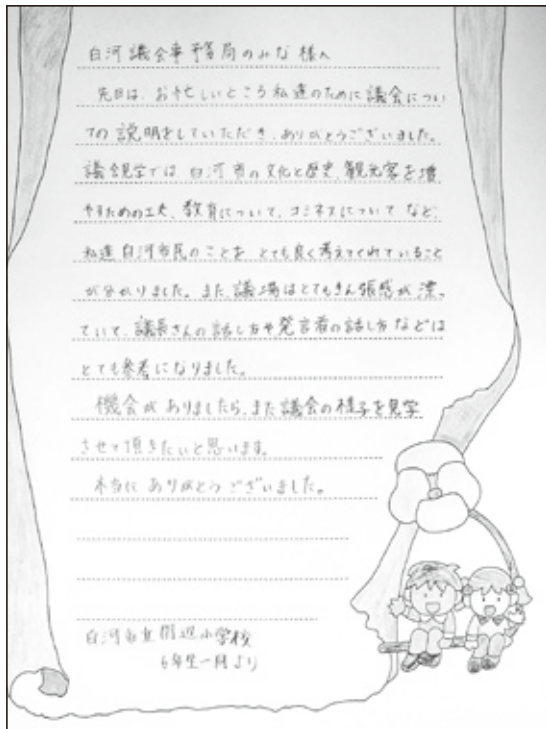 白河議会事務局のみな様へ
先日は、お忙しいところ私達のために議会につい
ての説明をしていただき、ありがとうございました。
議会見学では、白河市の文化と歴史、観光客を増
やすための工夫、教育について、コミネスについてなど、
私達白河市民のことをとても良く考えてくれていること
が分かりました。また、議場はとてもきん張感が漂っ
ていて、議長さんの話し方や発言者の話し方などは
とても参考になりました。
機会がありましたら、また議会の様子を見学
させて頂きたいと思います。
本当にありがとうございました。
白河市立関辺小学校
6年生一同より